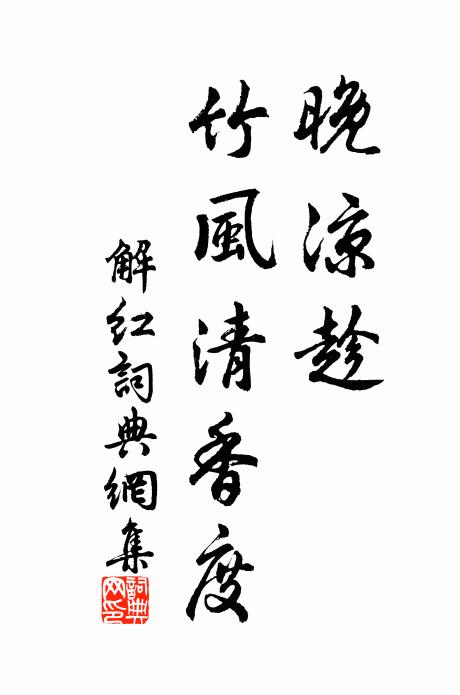 晚涼趁
竹風清香度
解紅詞典網集
詞典
网印